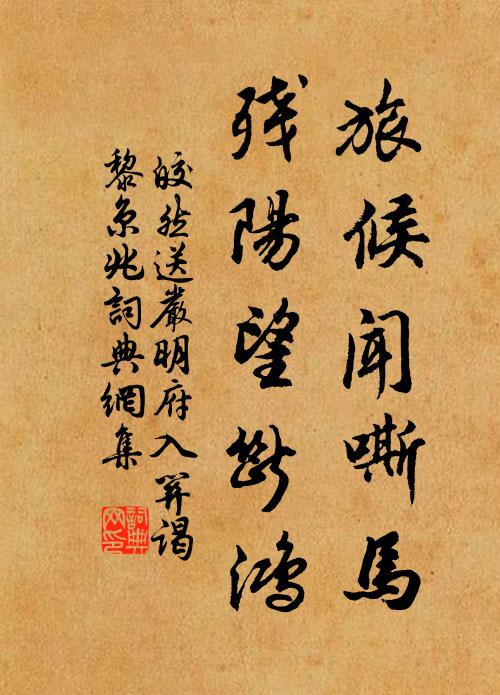 旅候聞嘶馬
殘陽望斷鴻
皎然送嚴明府入關謁
黎京兆詞典網集